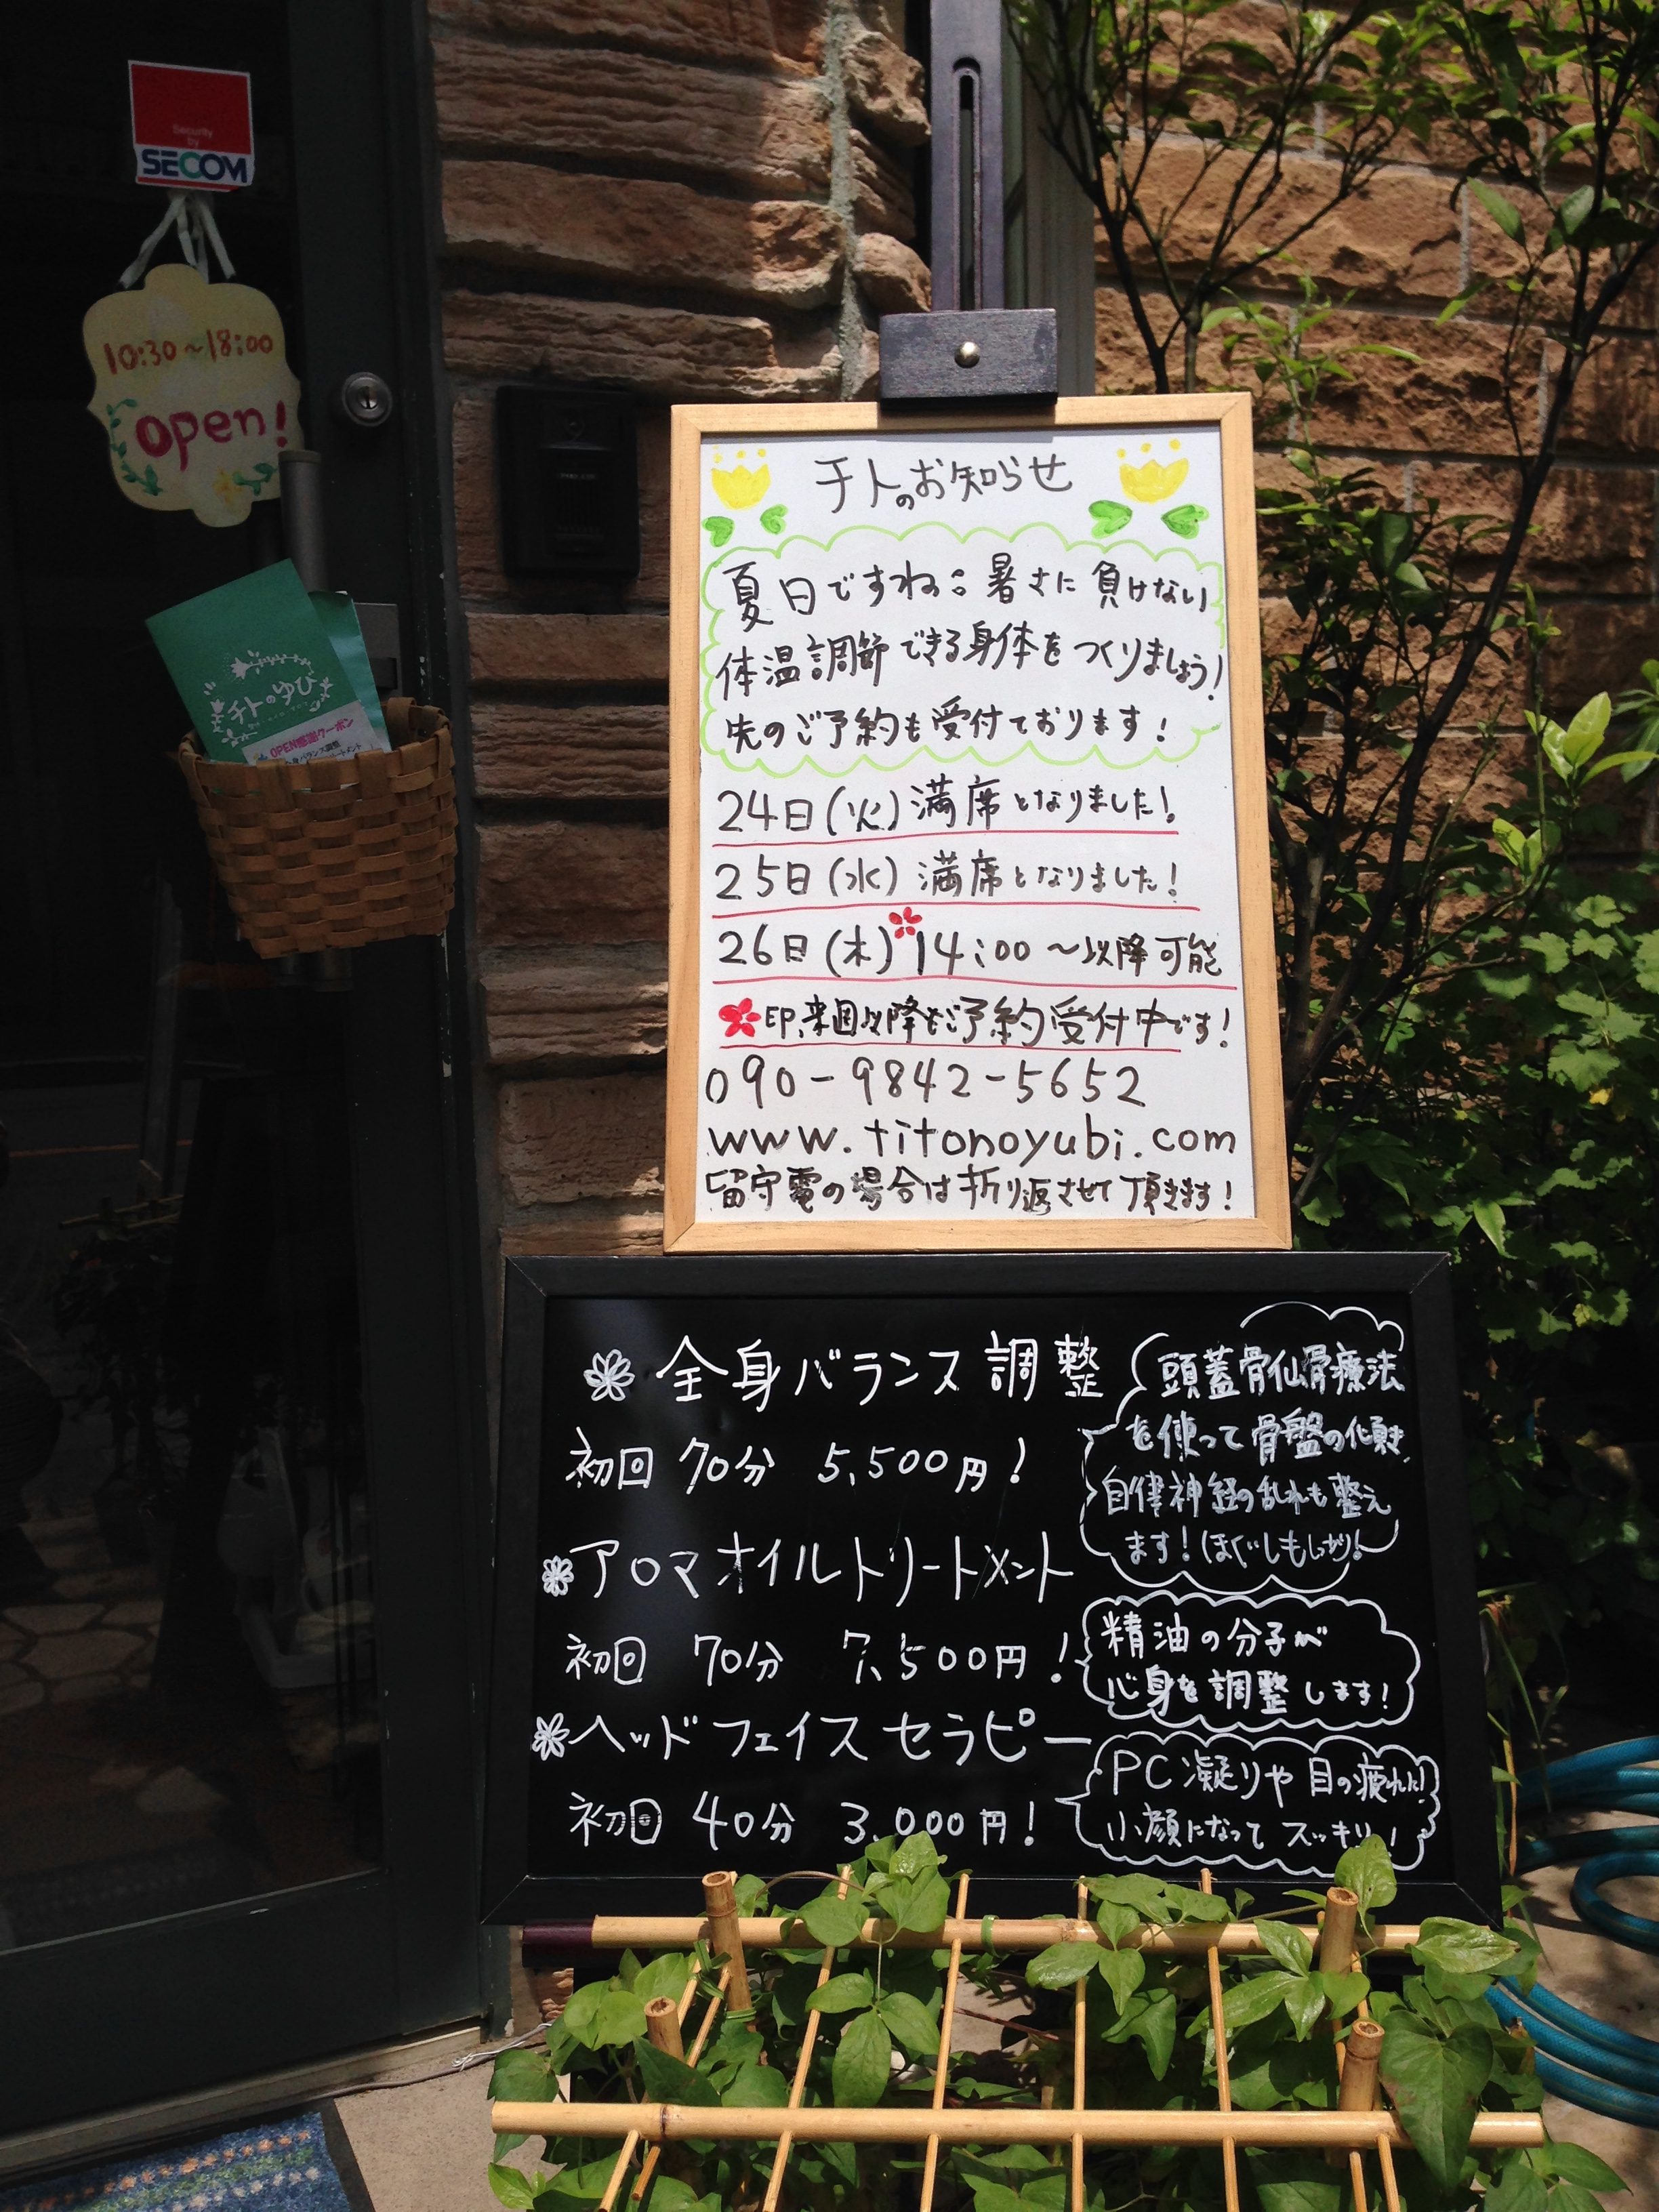 Security
by
SECOM
10:30～18:00
open!
チトのゆび
OPEN感謝クーポン
チトのお知らせ
夏日ですね:暑さに負けない
体温調節できる身体をつくりましょう!
先のご予約も受付ております!
24日(火)満席となりました!
25日(水)満席となりました!
26日(木)14:00～以降可能
印、来週以降もご予約受付中です!
090-9842-5652
www.titonoyubi.com
留守電の場合は折り返させて頂きます!
全身バランス調整
初回 70分 5,500円!
頭蓋骨仙骨療法
を使って骨盤の傾き、
自律神経の乱れも整え
ます!ほぐしもしっかり!
アロマオイルトリートメント
初回 70分 7,500円!
精油の分子が
心身を調整します!
ヘッドフェイスセラピー
初回 40分 3,000円!
PC凝りや目の疲れに!
小顔になってスッキリ!